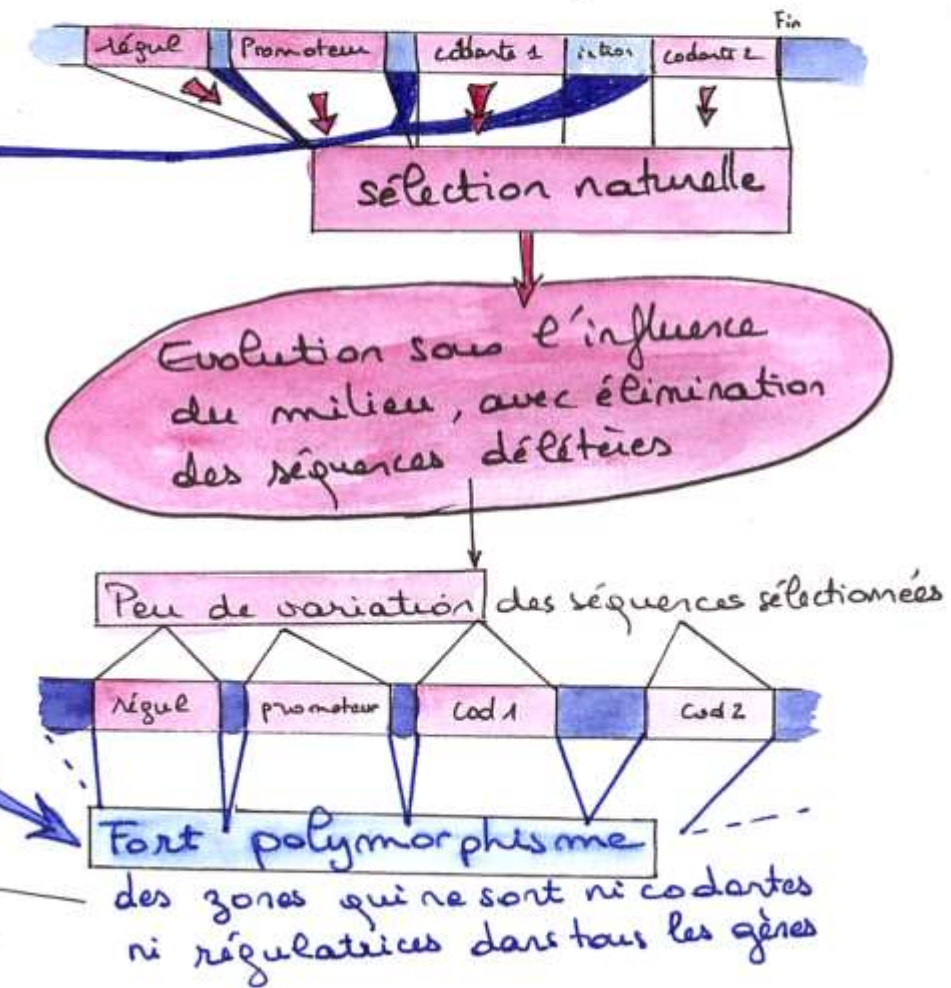 Fin
régul Promoteur codante 1 intron codante 2
sélection naturelle
Evolution sous l'influence
du milieu, avec élimination
des séquences délétères
Peu de variation des séquences sélectionnées
régul promoteur Cod 1 Cod 2
Fort polymorphisme
des zones qui ne sont ni codantes
ni régulatrices dans tous les gènes